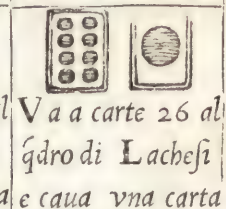 Va a carte 26 al
q̃dro di Lachesi
e caua vna carta